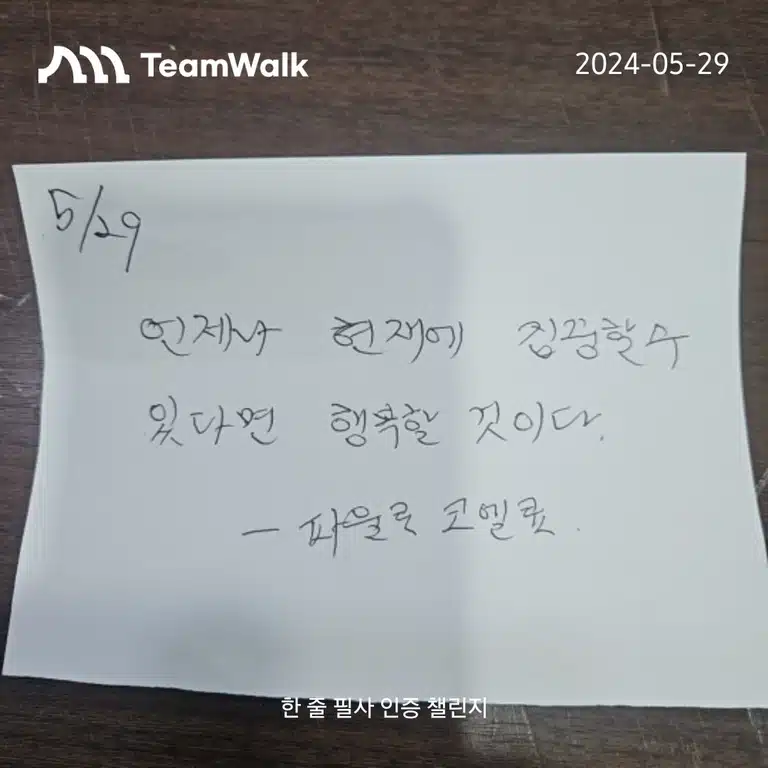 TeamWalk
2024-05-29
5/29
언제나 현재에 집중할수
있다면 행복할 것이다.
- 파울로 코엘료.
한 줄 필사 인증 챌린지